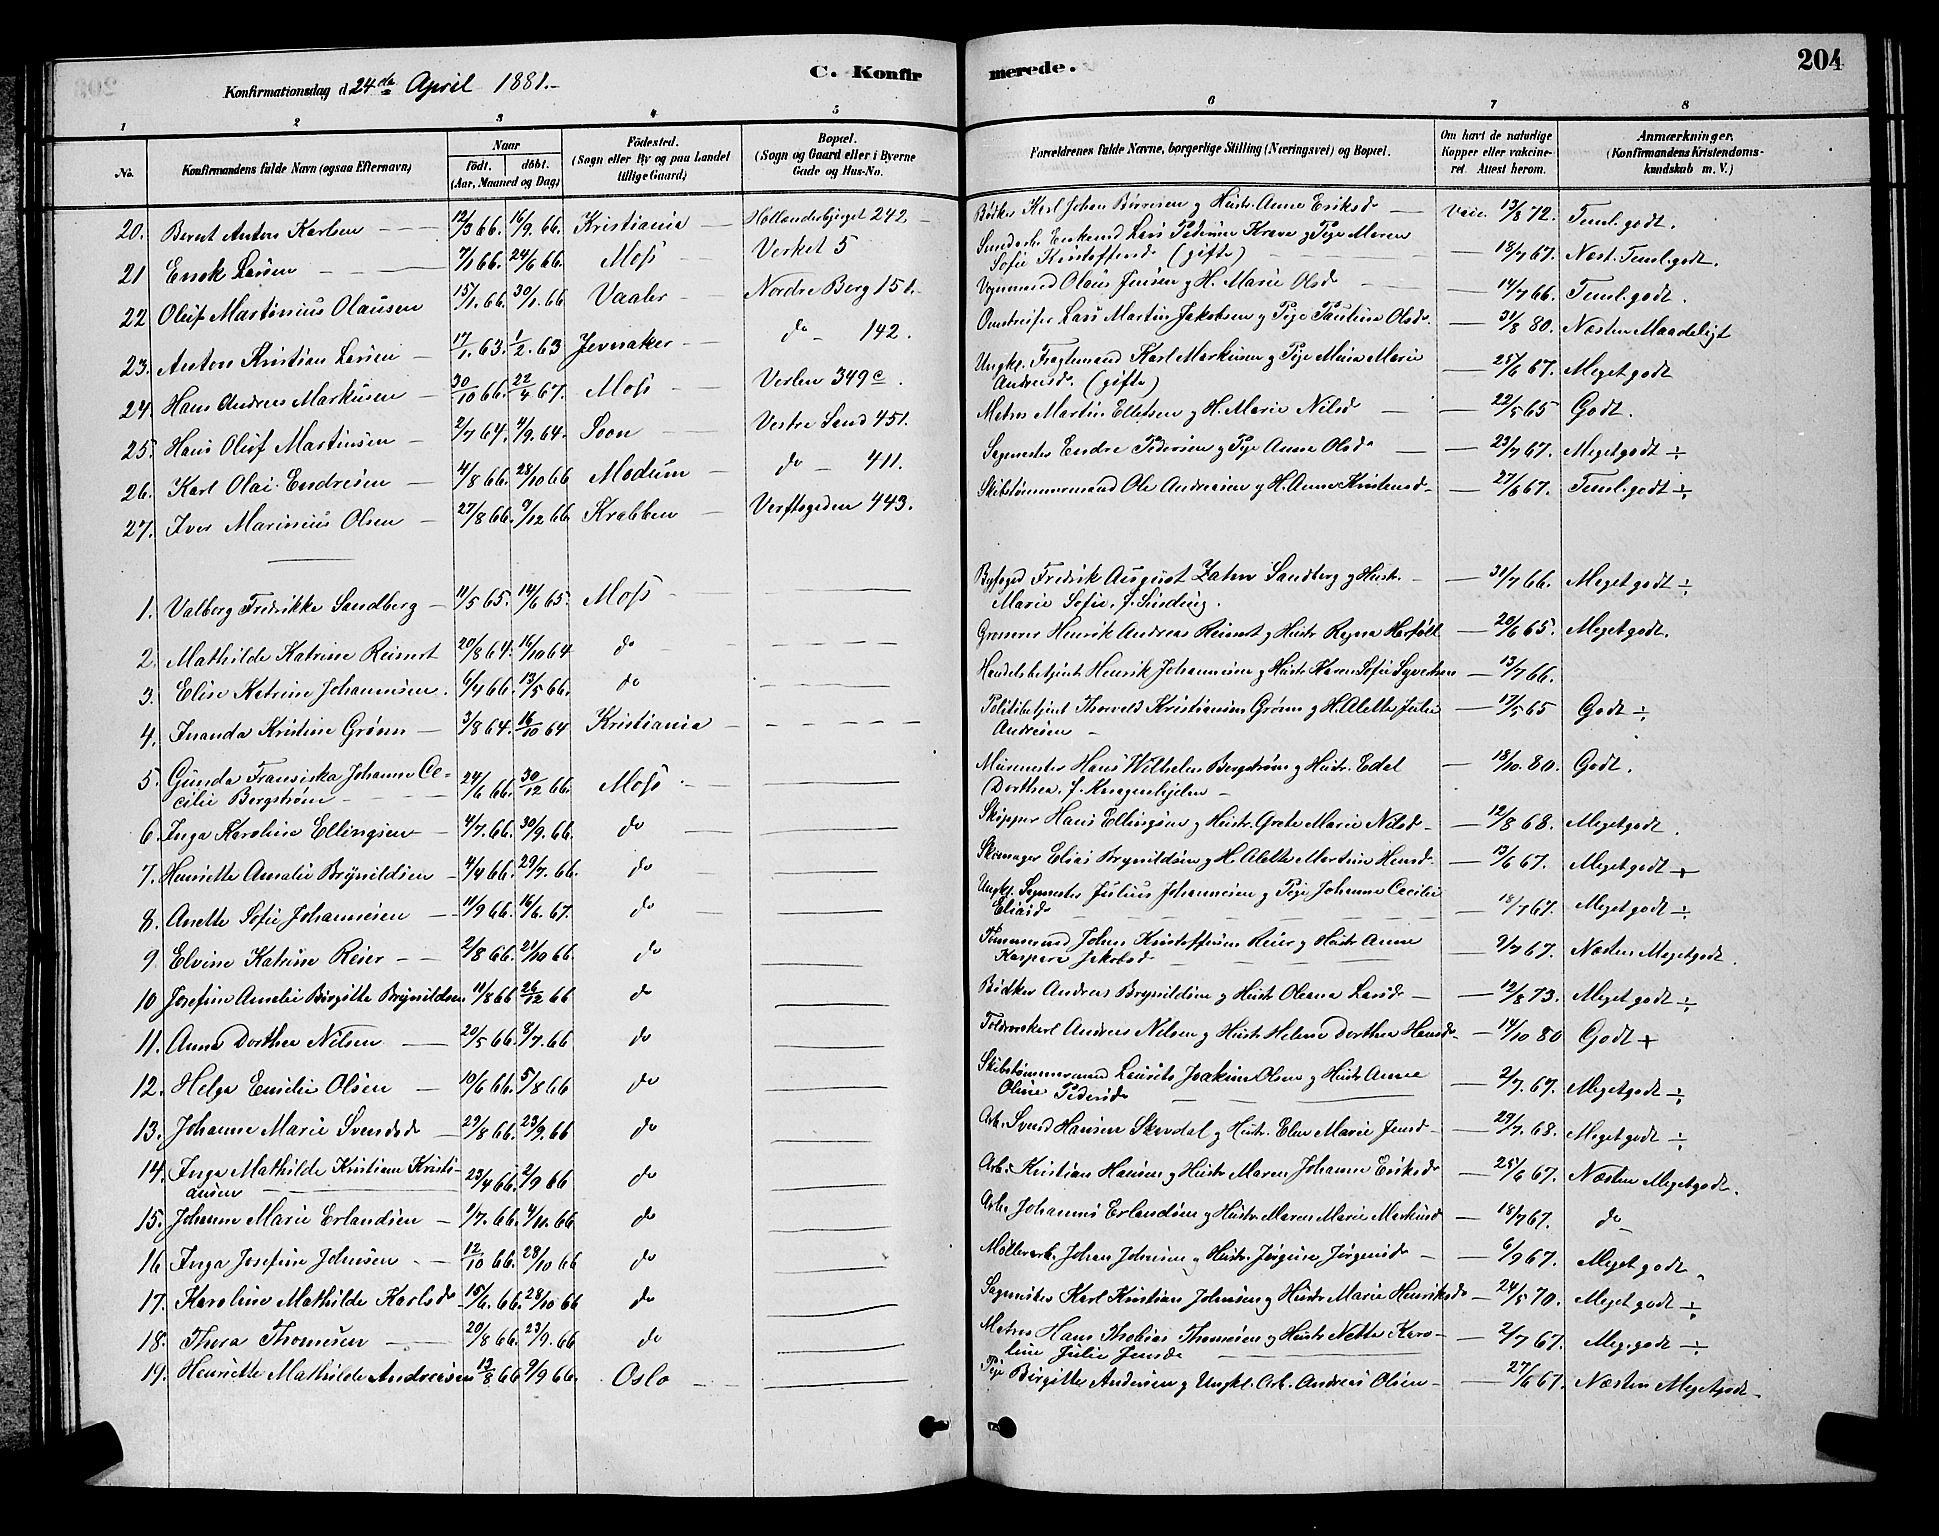 Konfirmationsdag d. 24de April 1881.
C. Konfirmerede.
204
1 2 3 4 5 6 7 8
No. Konfirmandens fulde Navn (ogsaa Efternavn) Naar Födt. döbt. (Aar, Maaned og Dag) Födested. (Sogn eller By og paa Landet tillige Gaard) Bopæl. (Sogn og Gaard eller i Byerne Gade og Hus-No. Forældrenes fulde Navne, borgerlige Stilling (Næringsvei) og Bopæl. Om havt de naturlige Kopper eller vakcineret. Attest herom. Anmærkninger. (Konfirmandens Kristendomskundskab m. V.)
20. Bernt Anton Karlsen 12/3 66. 16/9. 66. Kristiania 242 Bödker Karl Johan Börresen og Hustr. Anne Eriksd. Vacc. 13/8 72. Teml. godt.
21 Enok Larsen 7/1 66. 24/6 66. Moss Verket 5 Enkemd. Lars Pedersen og Pige Maren
Sofie Kristoffersd. (gifte) 18/7 67. Næst. Teml. godt.
22 Oluf Martinius Olausen 15/1. 66. 30/1. 66 Vaaler Nordre Berg 151. Vognmand Olaus Jensen og H. Marie Olsd. 14/7 66. Teml. godt.
23. Anton Kristian Larsen 17/1. 63. 1/2. 63 Jevnaker do 142. Lars Martin Jakobsen og Pige Pauline Olsd. 31/8 80. Næsten Maadeligt
24. Hans Andreas Markusen 30/10 66. 22/4 67. Moss Verlen 349c. Ungkl. Fragtemand Karl Markusen og Pige Marie
Andreasd. (gifte) 25/6 67. Meget godt
25. Hans Oluf Martinsen 2/7 64. 4/9. 64. Soon Vestre Sand 451. Matros Martin Elletsen og H. Marie Nilsd. 22/5 65 Godt.
26. Karl Olai Endresen 4/8 66. 28/10 66 Modum do 411. Sagmester Endre Pedersen og Pige Anne Olsd. 23/7 67. Meget godt ÷
27. Iver Marinius Olsen 27/8 66. 9/12 66 Krabben Verftsgaden 443. Skibstömmermand Ole Andreasen og H. Anne Kristensd. 27/6 67. Teml. godt ÷
1. Valborg Fredrikke Sandberg 11/5 65. 14/6 65. Moss Byfoged Fredrik August Zahn Sandberg og Hustr.
Marie Sofie, f. Sinding. 31/7 66. Meget godt ÷
2. Mathilde Katrine Reinert 20/8 64. 16/10 64 do Henrik Andreas Reinert og Hustr. 20/6 65. Meget godt.
3. Elise Katrine Johannesen. 6/4 66. 13/5 66. do Handelsbetjent Henrik Johannesen og Hustr. Karen Sofie Syvertsen 13/7 66.
4. Inanda Kristine Grönn 3/8 64. 16/10 64 Kristiania Politibetjent Thorvald Kristiansen Grönn og H. Alette Julie
Andresen 17/5 65 Godt ÷
5. Gunda Fransiska Johanne Ce-
cilie Bergström 24/6 66. 30/12 66. Moss Murmester Hans Wilhelm Bergström og Hustr. Edel
Dorthea, f. 18/10. 80. Godt.
6. Inga Karoline Ellingsen 4/7. 66. 30/9. 66. do Skipper Hans Ellingsen og Hustr. Grete Marie Nilsd. 12/8 68. Meget godt.
7. Henriette Amalie Brynildsen 4/4 66. 29/7. 66. do Skomager Elias Brynildsen og H. Alette Martine Hansd. 13/6 67. Meget godt +
8. Anette Sofie Johannesen 11/9 66. 16/6. 67. do Ungkl. Sagmester Julius Johannesen og Pige Johanne Cecilie
Eliasd. 18/7 67. Meget godt ÷
9. Elvine Katrine Reier 2/8 66. 21/10 66. do Tömmermd. Johan Kristoffersen Reier og Hustr. Anne
Kaspara Jakobsd. 9/7 67. Næsten Meget godt.
10. Josefine Amalie Birgitte Brynildsen 11/8 66 26/12 66 do Bödker Andreas Brynildsen og Hustr. Oleana Larsd. 12/8 73. Meget godt ÷
11. Anna Dorthea Nilsen 20/5 66. 8/7. 66 do Andreas Nilsen og Hustr. Helene Dorthea Hansd. 14/10 80 Godt +
12. Helga Emilie Olsen 10/6 66. 5/8 66 do Skibstömmermand Laurits Joakim Olsen og Hustr. Anne
Oline Pedersd. 2/7. 67. Meget godt ÷
13. Johanne Marie Svendsd. 29/8 66. 23/9. 66 do Arb. Svend Hansen og Hustr. Elen Marie Jensd. 29/7. 68. Meget godt ÷
14. Inga Mathilde Kristiane Kristi-
ansen 23/4 66. 2/9 66 do Arb. Kristian Hansen og Hustr. Maren Johanne Eriksd. 25/6 67. Næsten Meget godt.
15. Johanne Marie Erlandsen 1/7. 66. 4/11. 66 do Arb. Johannes Erlandsen og Hustr. Maren Marie Markusd. 18/7 67. do
16. Inga Josefine Johnsen 12/10 66. 28/10 66 do Möllerarb. Johan Johnsen og Hustr. Jörgine Jörgensd. 6/9 67. Meget godt
17. Karoline Mathilde Karlsd. 15/6. 66. 28/10 66 do Sagmester Karl Kristian Johnsen og Hustr. Marie Henriksd. 24/5 70. Meget godt ÷
18. Thora Thomesen 20/8 66. 23/9. 66 do Matros Hans Thobias Thomesen og Hustr. Nette Karo-
line Julie Jensd. 2/7 67. Meg. godt ÷
19. Henriette Mathilde Andreasen 13/8 66 9/9 66. Oslo Pige Birgitte Andersen og Ungkl. Arb. Andreas Olsen 27/6 67. Næsten Meget godt